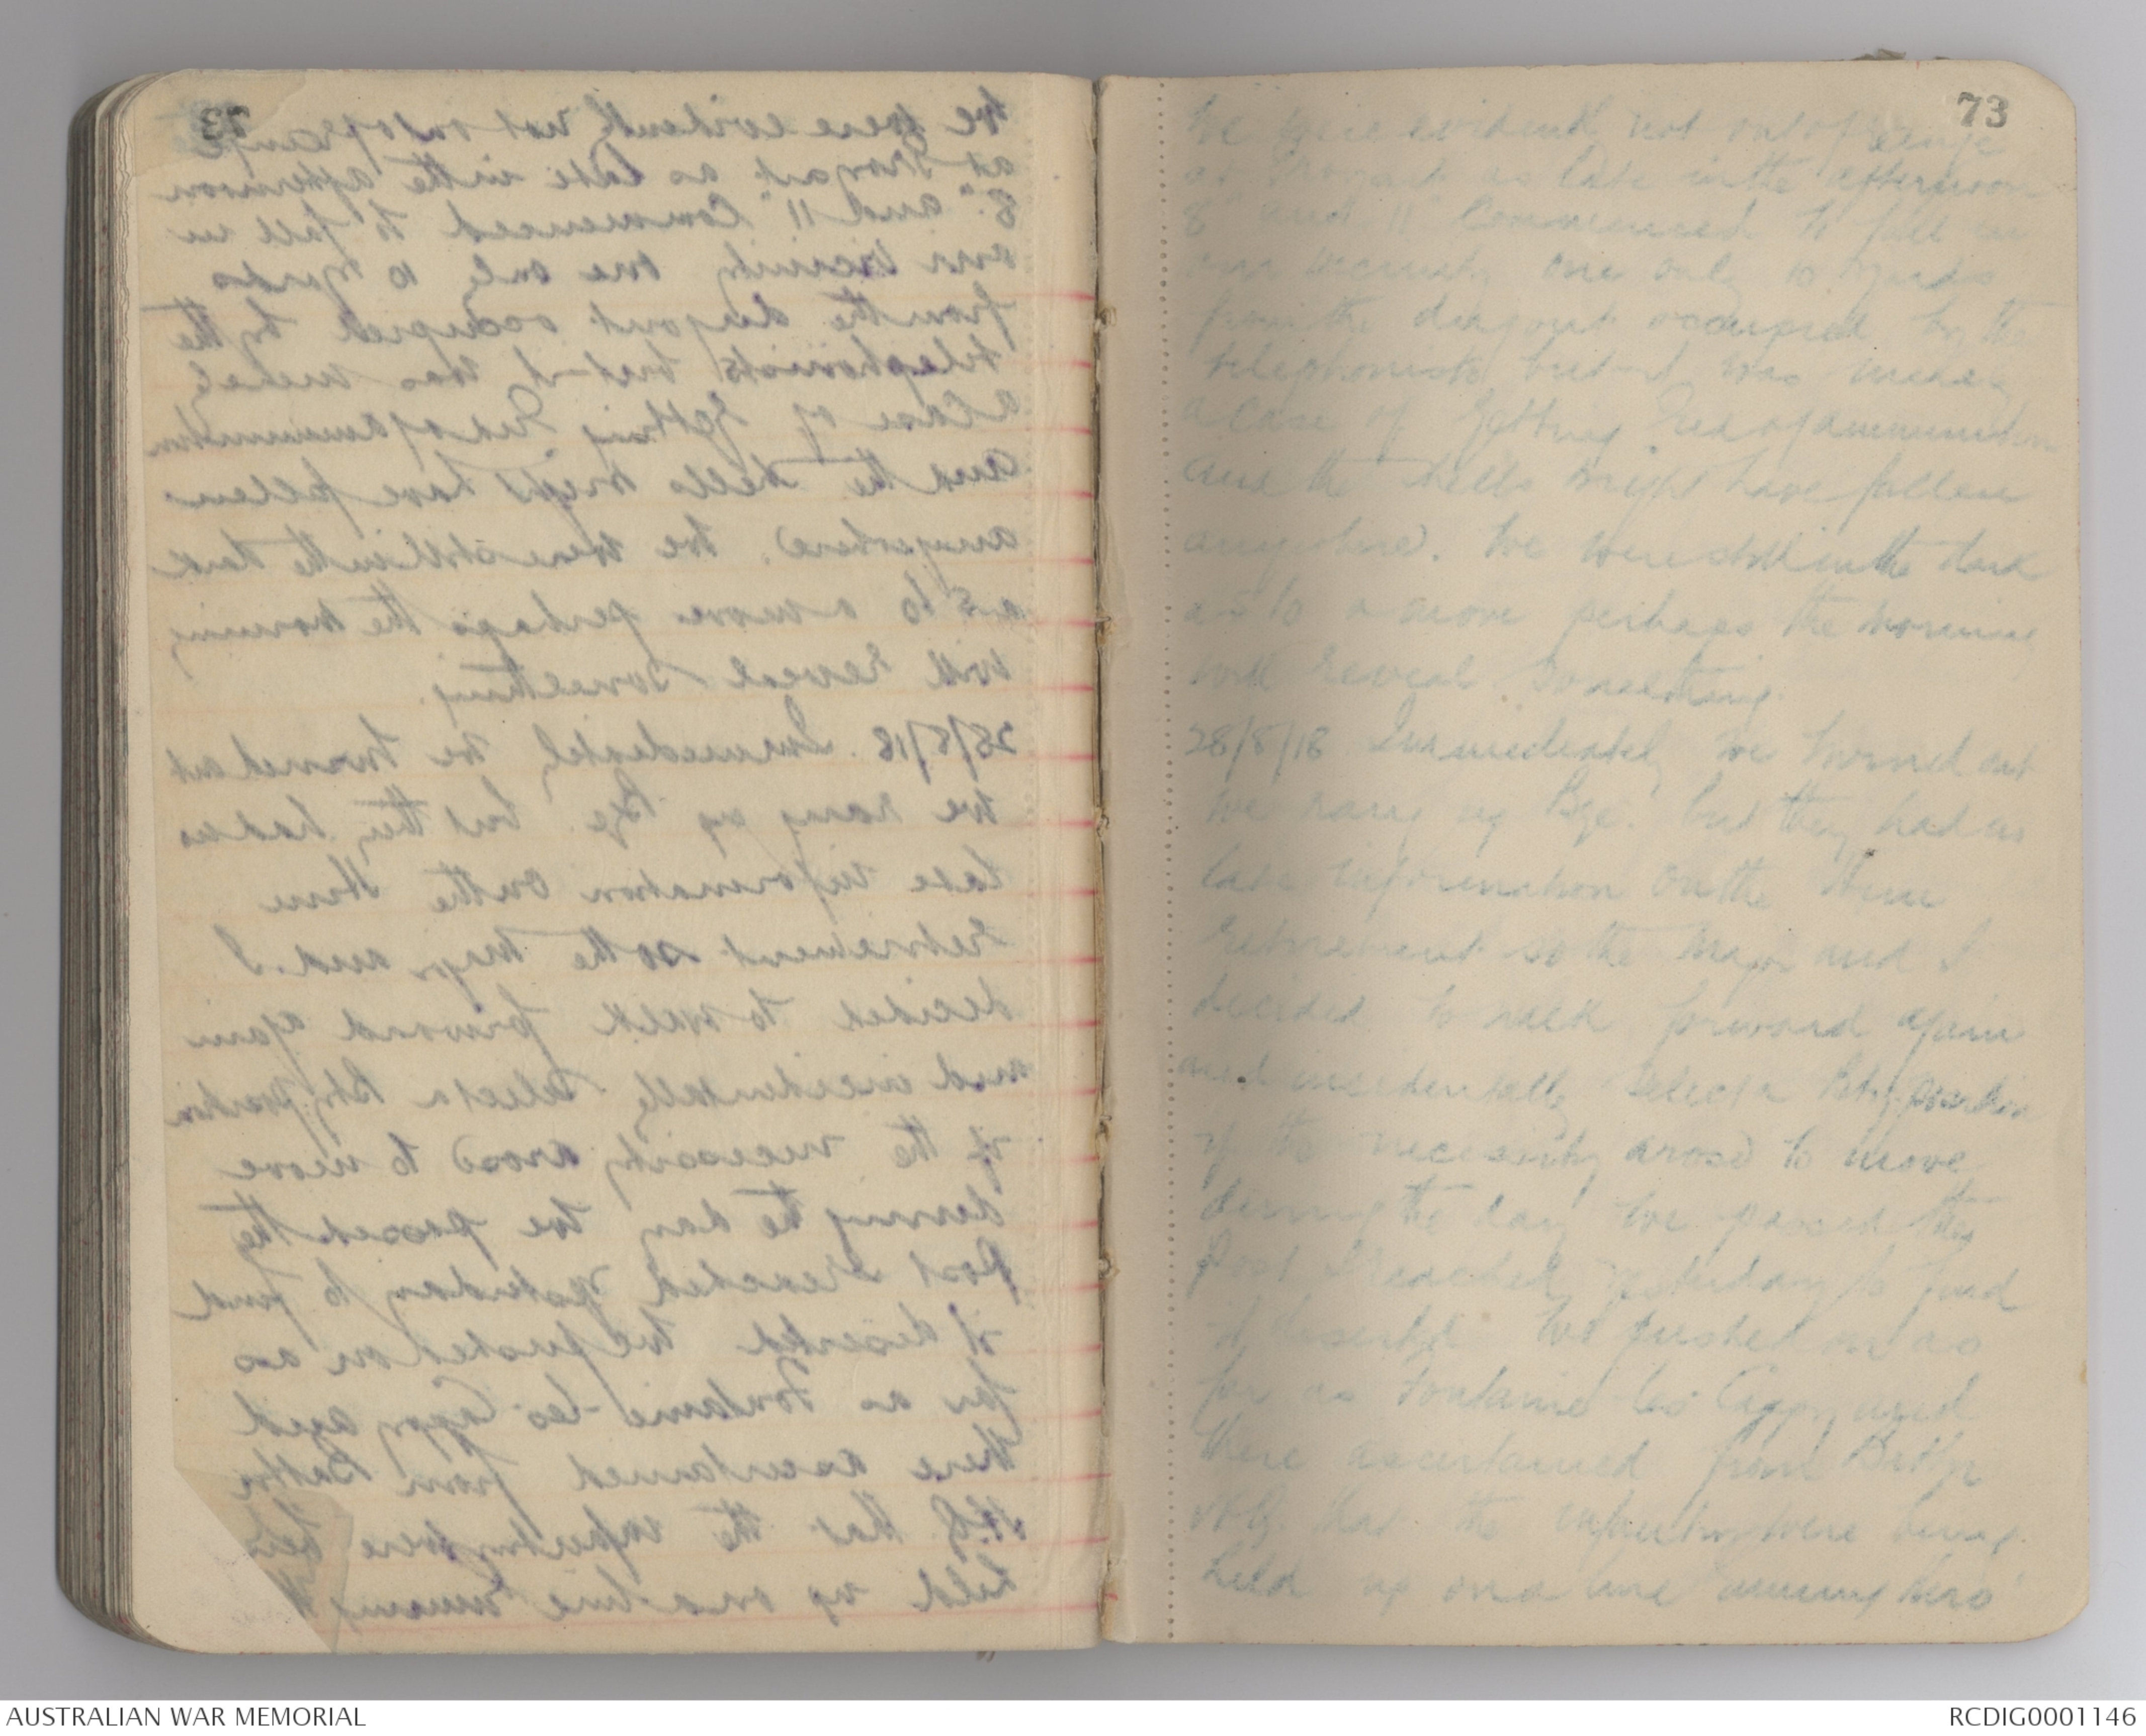 73
We were evidently not out of range
at as late in the afternoon
8" and 11" commenced to fall in
our vicinity one only 10 yards
from the dugout occupied by the
telephonists but it was merely
a case of getting rid of ammunition
and the shells might have fallen
anywhere. We were still in the dark
as to a move perhaps the morning
will reveal something.
28/8/18 Immediately we turned out
we rang up Bge. but they had no
late information on the Hun
retirement so the Major and I
decided to walk forward again
and incidentally select a Bty position
if the necessity arose to move
during the day we passed the
Post I reached yesterday to find
it deserted We pushed on as
far as Fontaine-les-Cappy and
there ascertained from Battn
that the infantry were being
held up on a line running
AUSTRALIAN WAR MEMORIAL
RCDIG0001146